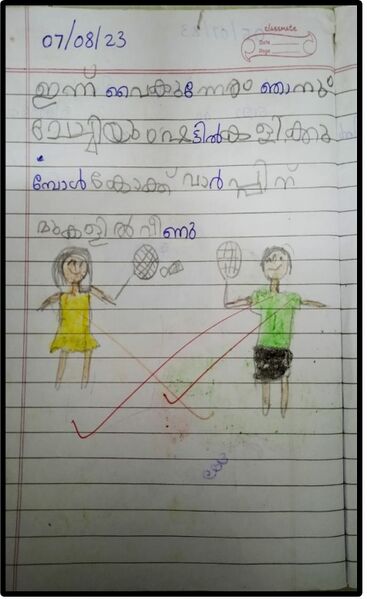 07/08/23
classmate
Date
Page
ഇന്ന് വൈകുന്നേരം ഞാനും
ചേച്ചിയും ഷട്ടിൽ കളിക്കു
മ്പോൾ കോക്ക് വാർപ്പിന്
മുകളിൽ വീണു